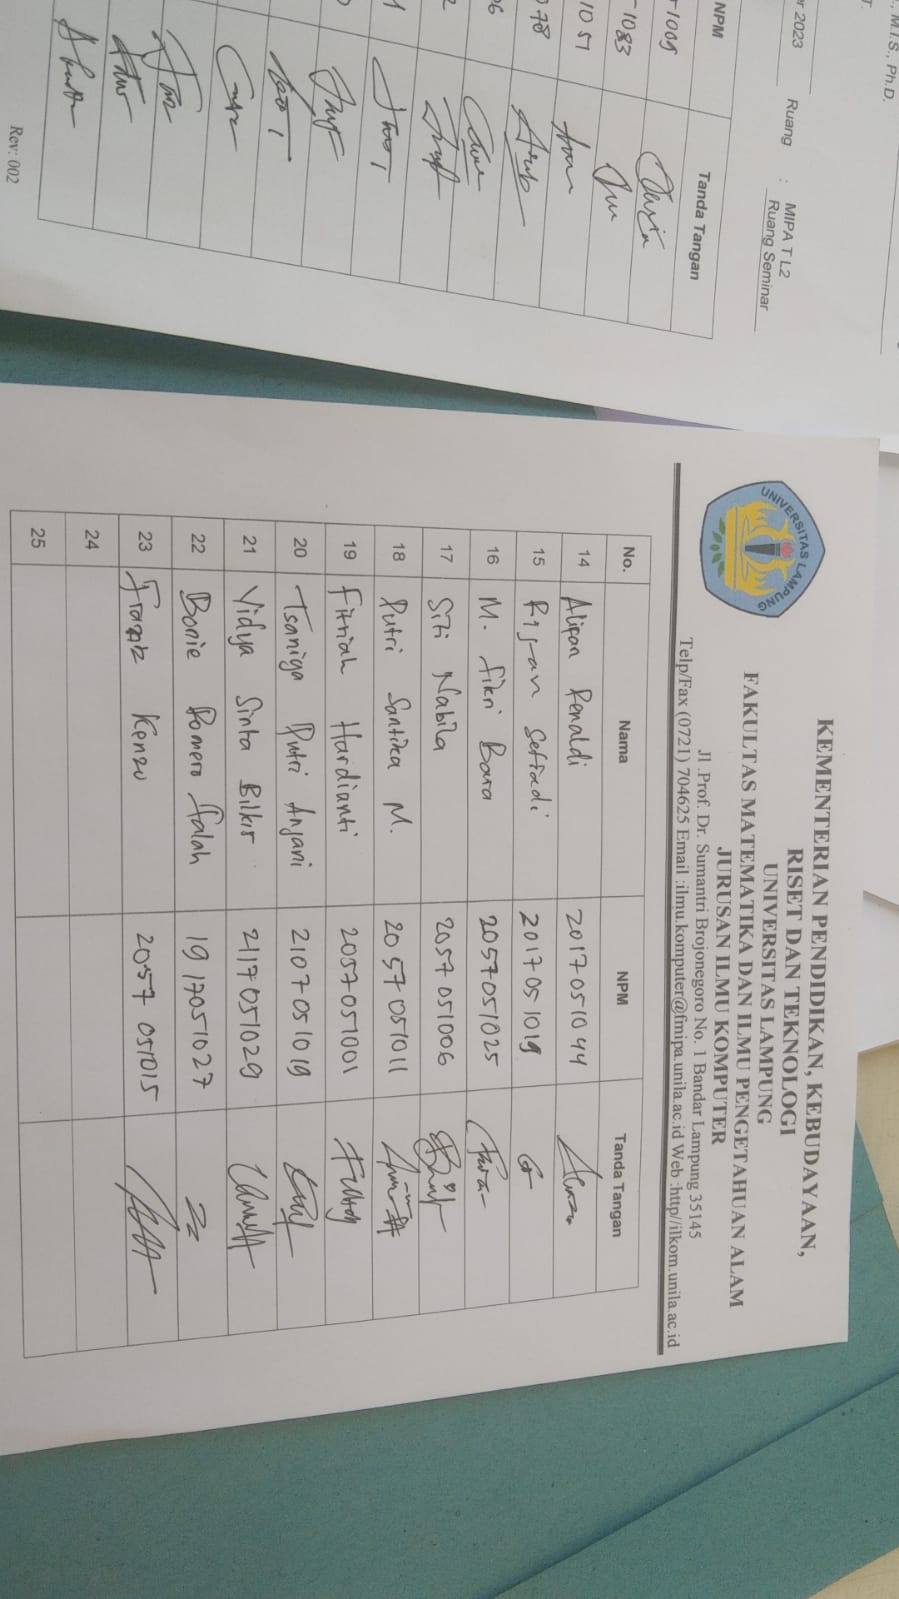 , M.I.S., Ph.D.
T.
r 2023
Ruang : MIPA T L2
Ruang Seminar
NPM Tanda Tangan
1009
1083
1051
078
06
Rev: 002
UNIVERSITAS LAMPUNG
KEMENTERIAN PENDIDIKAN, KEBUDAYAAN,
RISET DAN TEKNOLOGI
UNIVERSITAS LAMPUNG
FAKULTAS MATEMATIKA DAN ILMU PENGETAHUAN ALAM
JURUSAN ILMU KOMPUTER
Jl .Prof. Dr. Sumantri Brojonegoro No. 1 Bandar Lampung 35145
Telp/Fax (0721) 704625 Email :ilmu.komputer@fmipa.unila.ac.id Web :http//ilkom.unila.ac.id
No. Nama NPM Tanda Tangan
14 Alifan Renaldi 2017051044
15 Setiadi 2017051019
16 M. Fikri Bara 2057051025
17 Siti Nabila 2057051006
18 Putri Santika M. 2057051011
19 Fitriah Hardianti 2057051001
20 Tsaniya Putri Anjani 2107051019
21 Vidya Sinta Bilkis 2117051029
22 Bonie Romero Falah 1917051027
23 Kenzo 2057051015
24
25